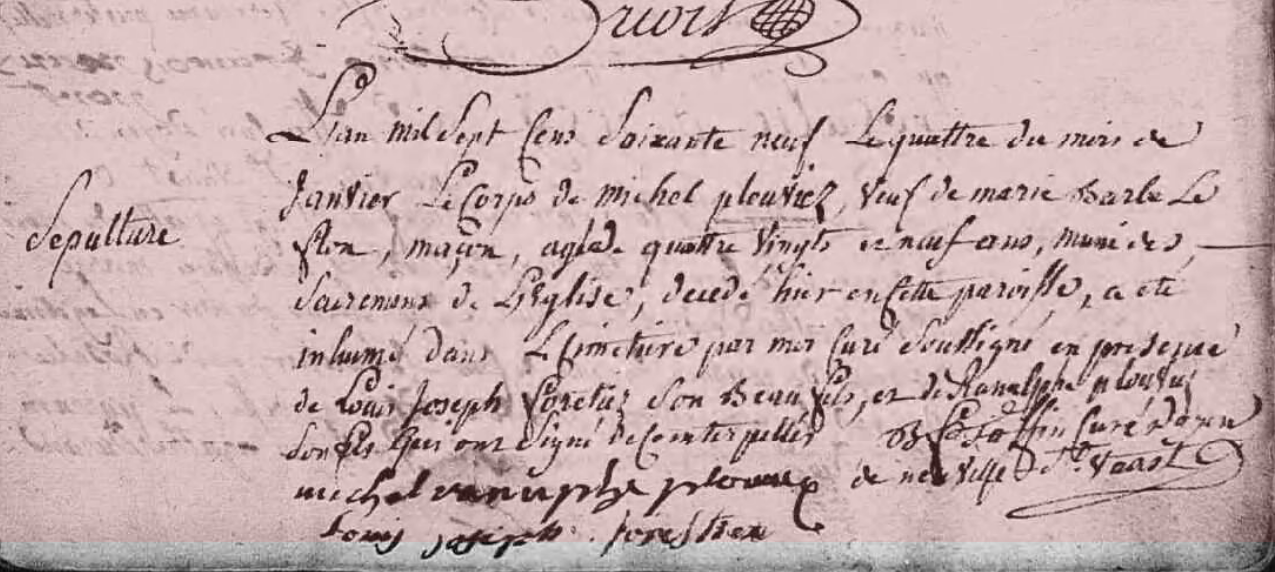 L'an mil Sept Cens Soixante neuf Le quattre du mois de
Janvier Le Corps de Michel plouviez, veuf de marie Barbe Le
Sepulture
, maçon, agé de quattre vingts et neuf ans, muni des
Sacremens de L'Eglise, decedé hier en Cette paroisse, a eté
inhumé dans Le Cimetiere par moi Curé Soussigné en presence
de Louis Joseph son Beau fils, et de Ranulphe plouviez
son fils qui ont Signé de Ce interpellés Curé
de neuville St. Vaast
michel ranuphe
Louis Joseph forestier